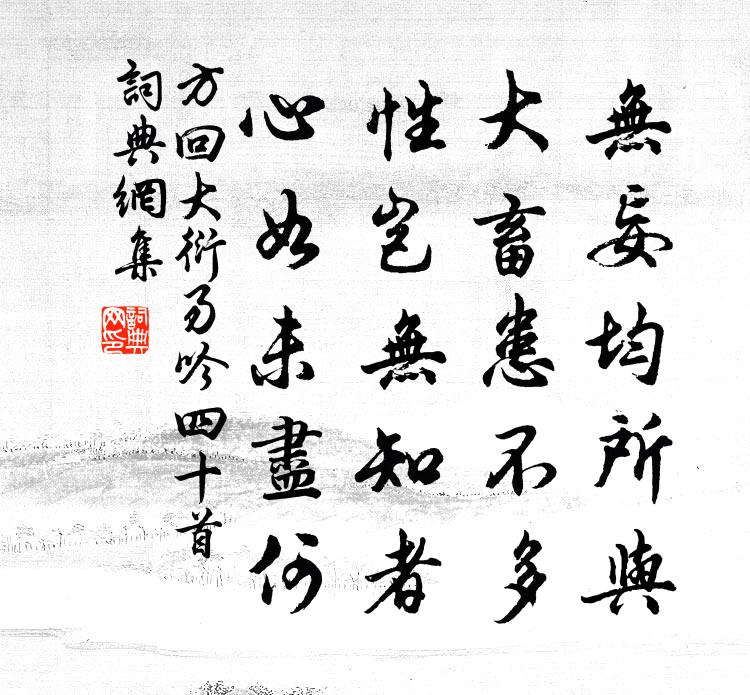 無妄均所與
大畜患不多
性豈無知者
心如未盡何
方回大衍易吟四十首
詞典網集
詞典網印